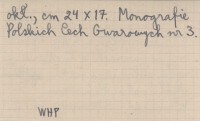 okł., cm 24 x 17. Monografie
Polskich Cech Gwarowych nr 3.
WHP